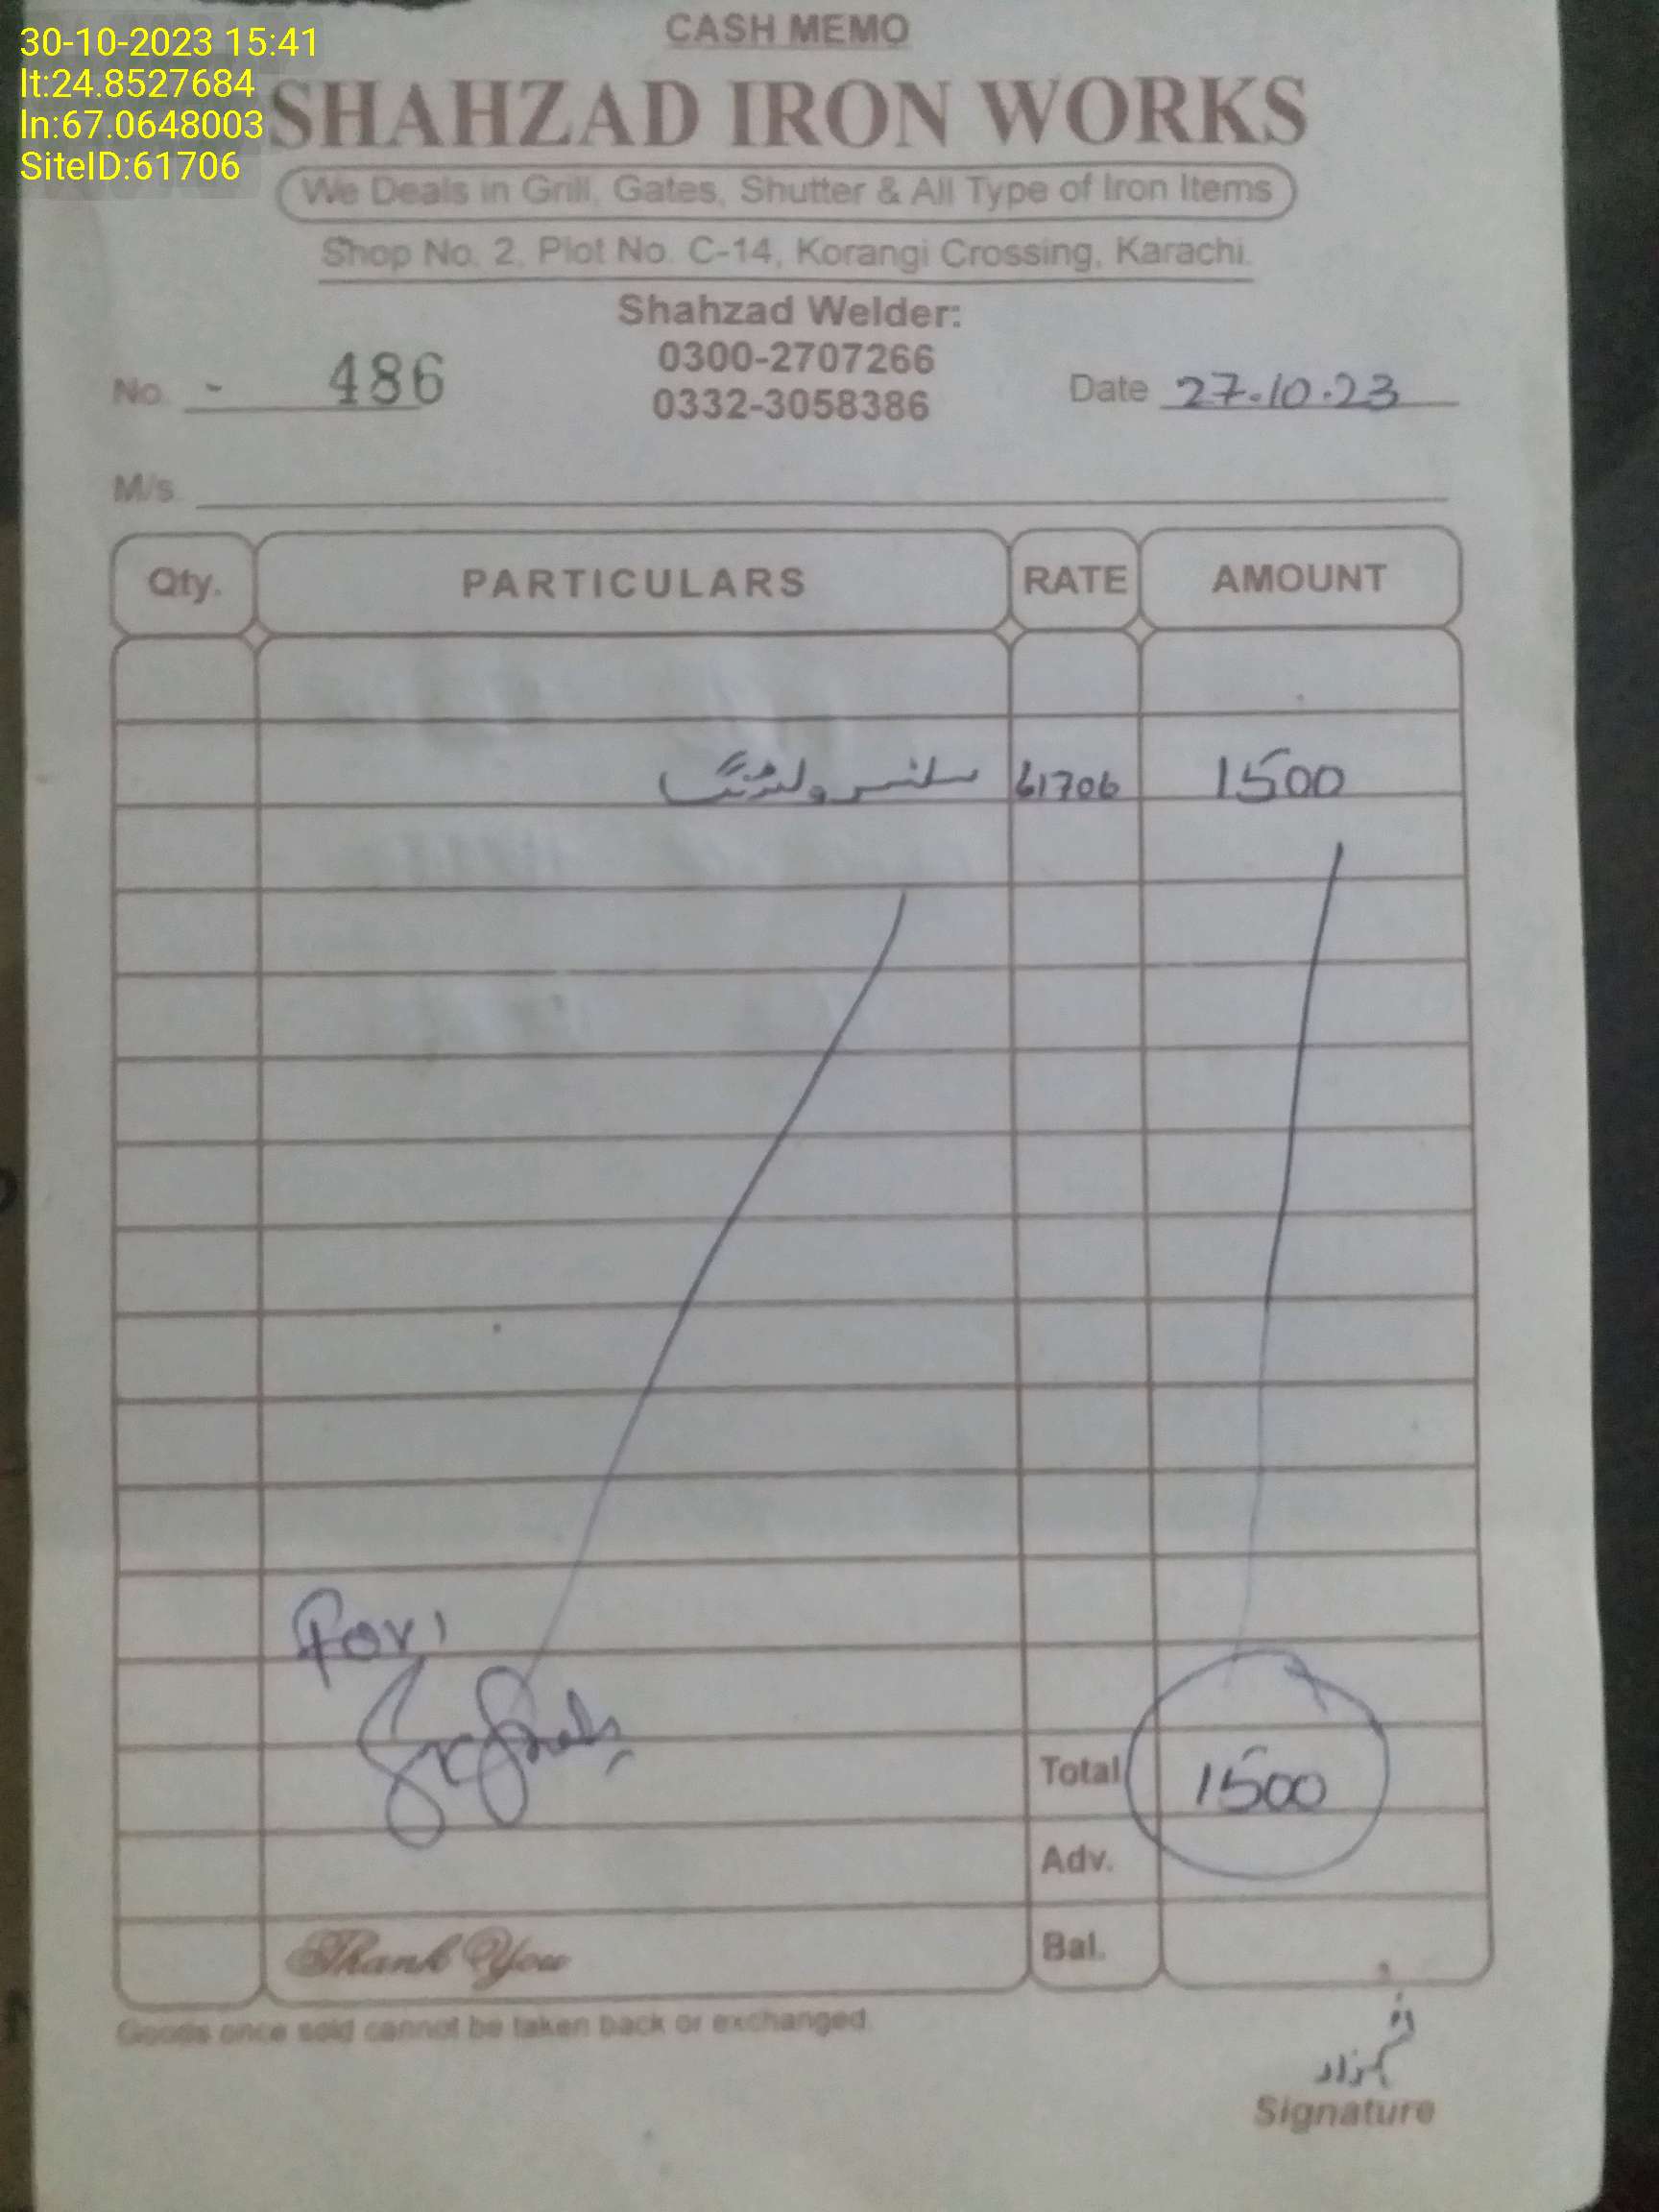 30-10-2023 15:41
lt:24.8527684
ln:67.0648003
SiteID:61706
CASH MEMO
SHAHZAD IRON WORKS
We Deals in Grill, Gates, Shutter & All Type of Iron Items
Shop No. 2, Plot No. C-14, Korangi Crossing, Karachi.
Shahzad Welder:
0300-2707266
0332-3058386
No. - 486
Date 27.10.23
M/s.
Qty. PARTICULARS RATE AMOUNT
سلنسر ولڈنگ 61706 1500
For,
Total 1500
Adv.
Thank You Bal.
Goods once sold cannot be taken back or exchanged.
شہزاد
Signature